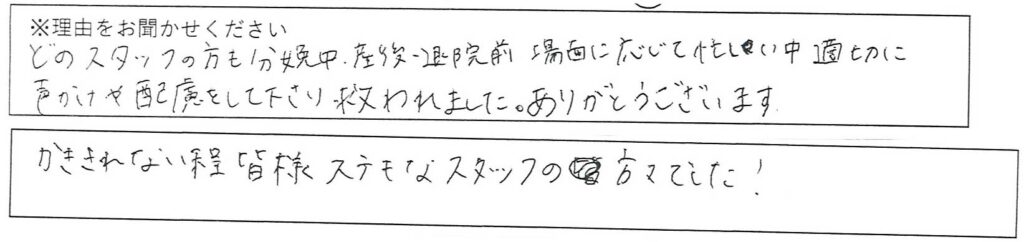 ※理由をお聞かせください
どのスタッフの方も分娩中、産後・退院前 場面に応じて忙しい中適切に
声かけや配慮をして下さり救われました。ありがとうございます
かききれない程皆様ステキなスタッフの方々でした！